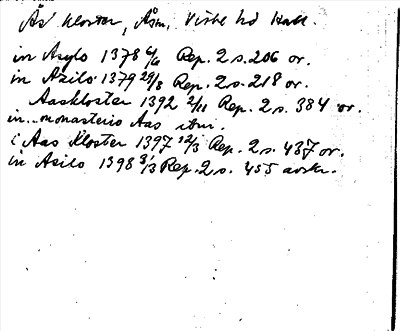 Ås kloster, Åsm, Viske hd Hall.
in Asylo 1378 6/6 Rep. 2 s. 206 or.
in Azilo 1379 29/8 Rep. 2 s. 218 or.
Aaskloster 1392 2/11 Rep. 2 s. 384 or.
in .. monasterio Aas ibm.
i Aas Kloster 1397 12/3 Rep. 2 s. 437 or.
in Asilo 1398 3/3 Rep. 2 s. 455 avskr.